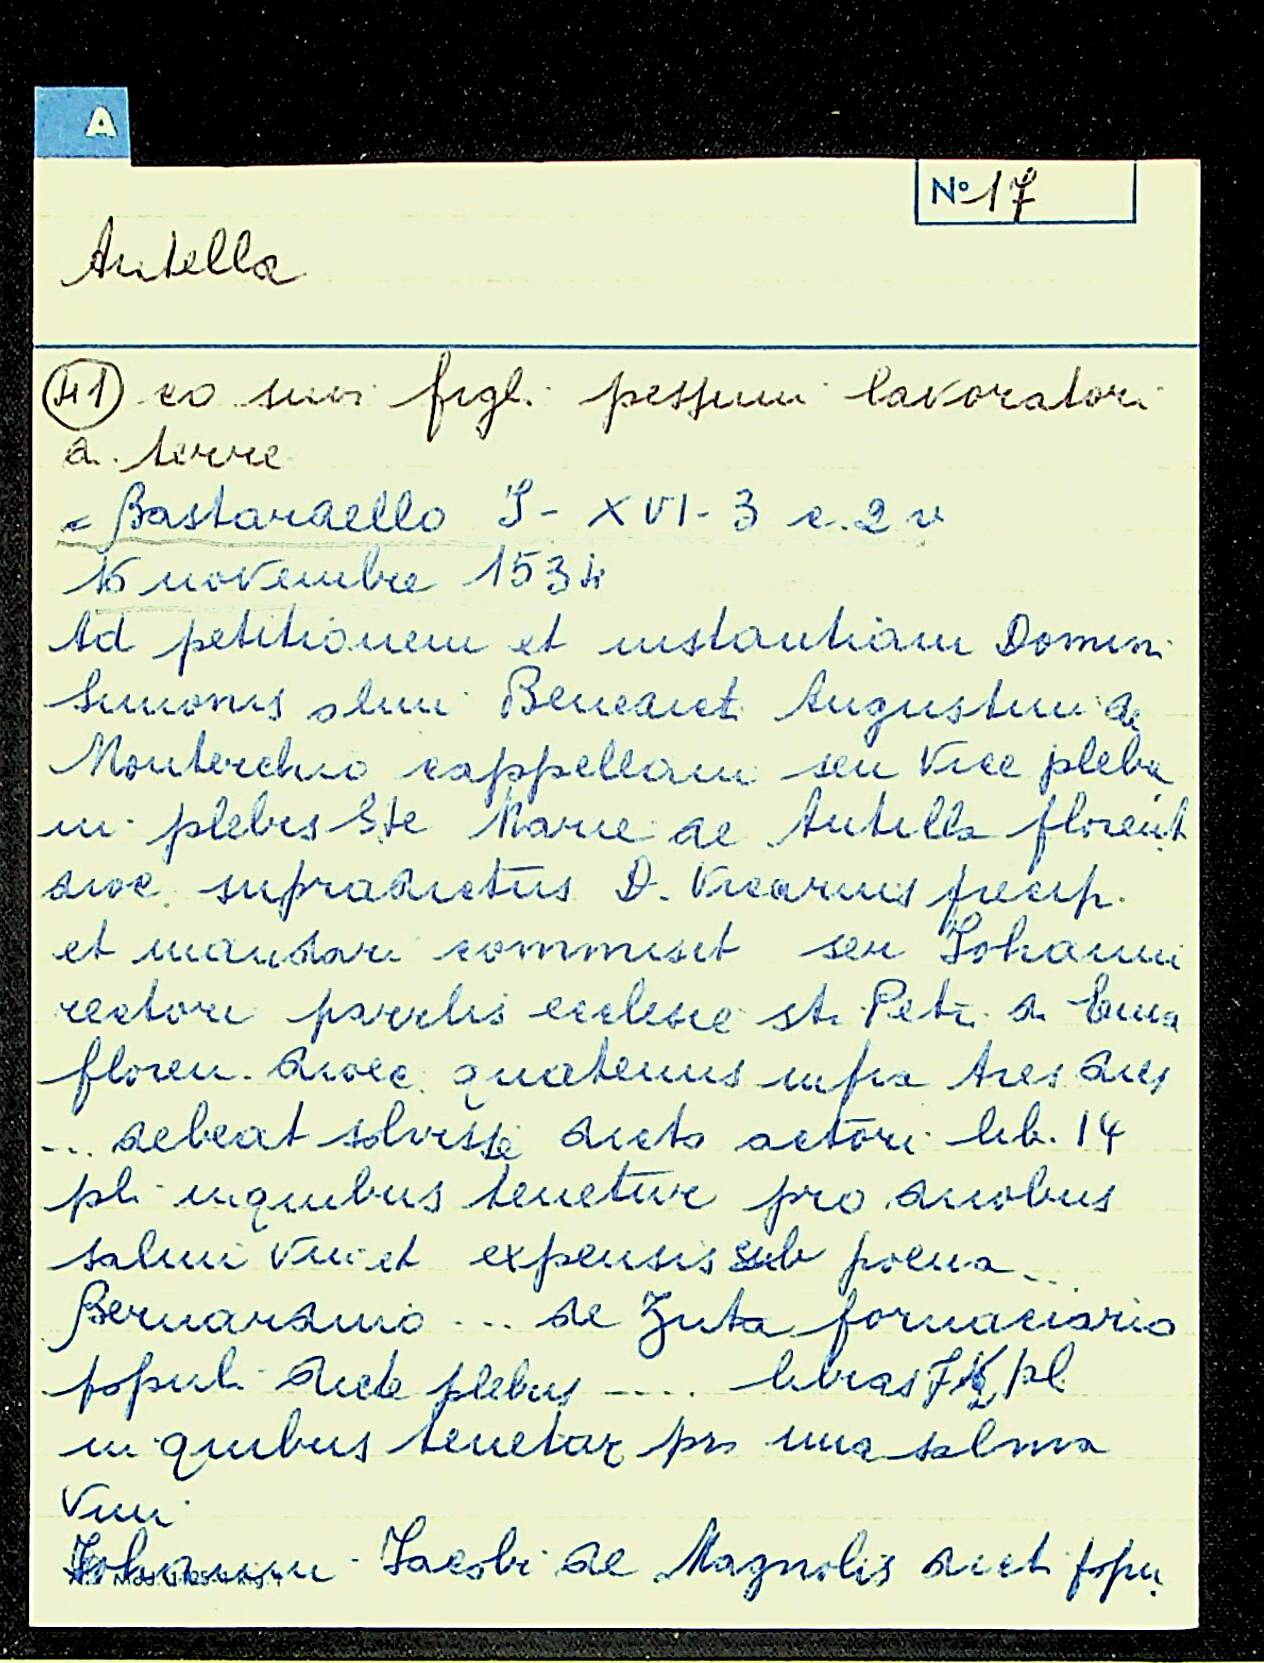 A
Nº 17
Antella
41) co suoi figli pessimi lavoratori
di terre
= Bastardello I - XVI - 3 c. 2 v
16 novembre 1534
Ad petitionem et instantiam Domini
Simonis olim Benedicti Augustini de
Monterchio cappellani seu vice pleba
ni plebis Ste Marie de Antella florent
dioc. supradictus D. Vicarius precip.
et mandari commisit ser Johanni
rectori parrlis ecclesie sti Petri a Ema
floren. dioec. quatenus infra tres dies
... debeat solvisse dicto actori lib. 14
pli in quibus tenetur pro duobus
salmi vini et expensis sub poena ...
Bernardino ... de Zuta fornaciario
populi dicte plebis .... libras 7 pl
in quibus tenetur pro una salma
vini
Johanni Jacobi de Magnolis dicti popu